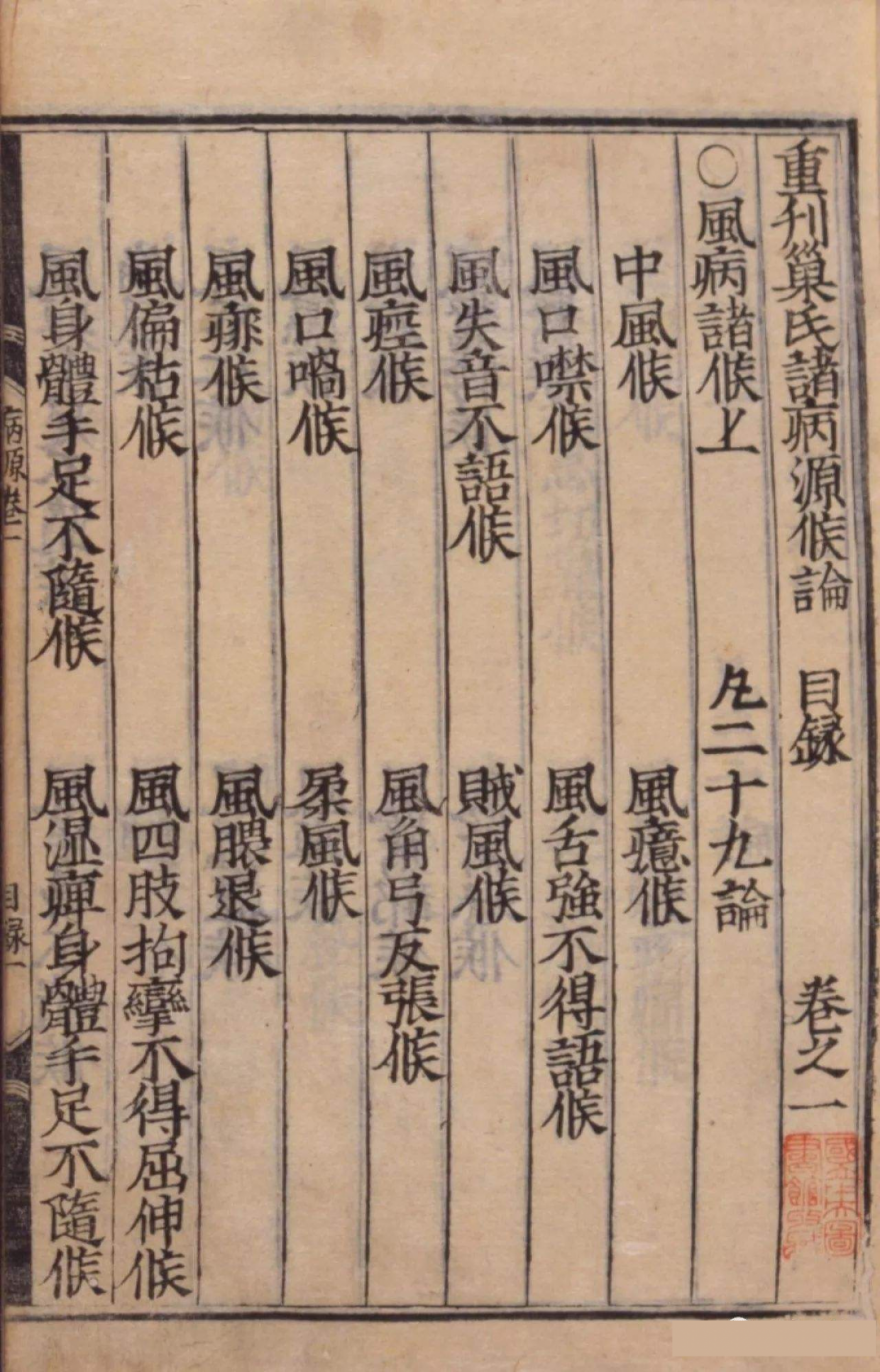 重刊巢氏諸病源候論　目録　卷之一
〇風病諸候上　凡二十九論
中風候　風癔候
風口噤候　風舌強不得語候
風失音不語候　賊風候
風痙候　風角弓反張候
風口喎候　柔風候
風痱候　風腲退候
風偏枯候　風四肢拘攣不得屈伸候
風身體手足不隨候　風湿痺身體手足不隨候
病源卷一
目録一